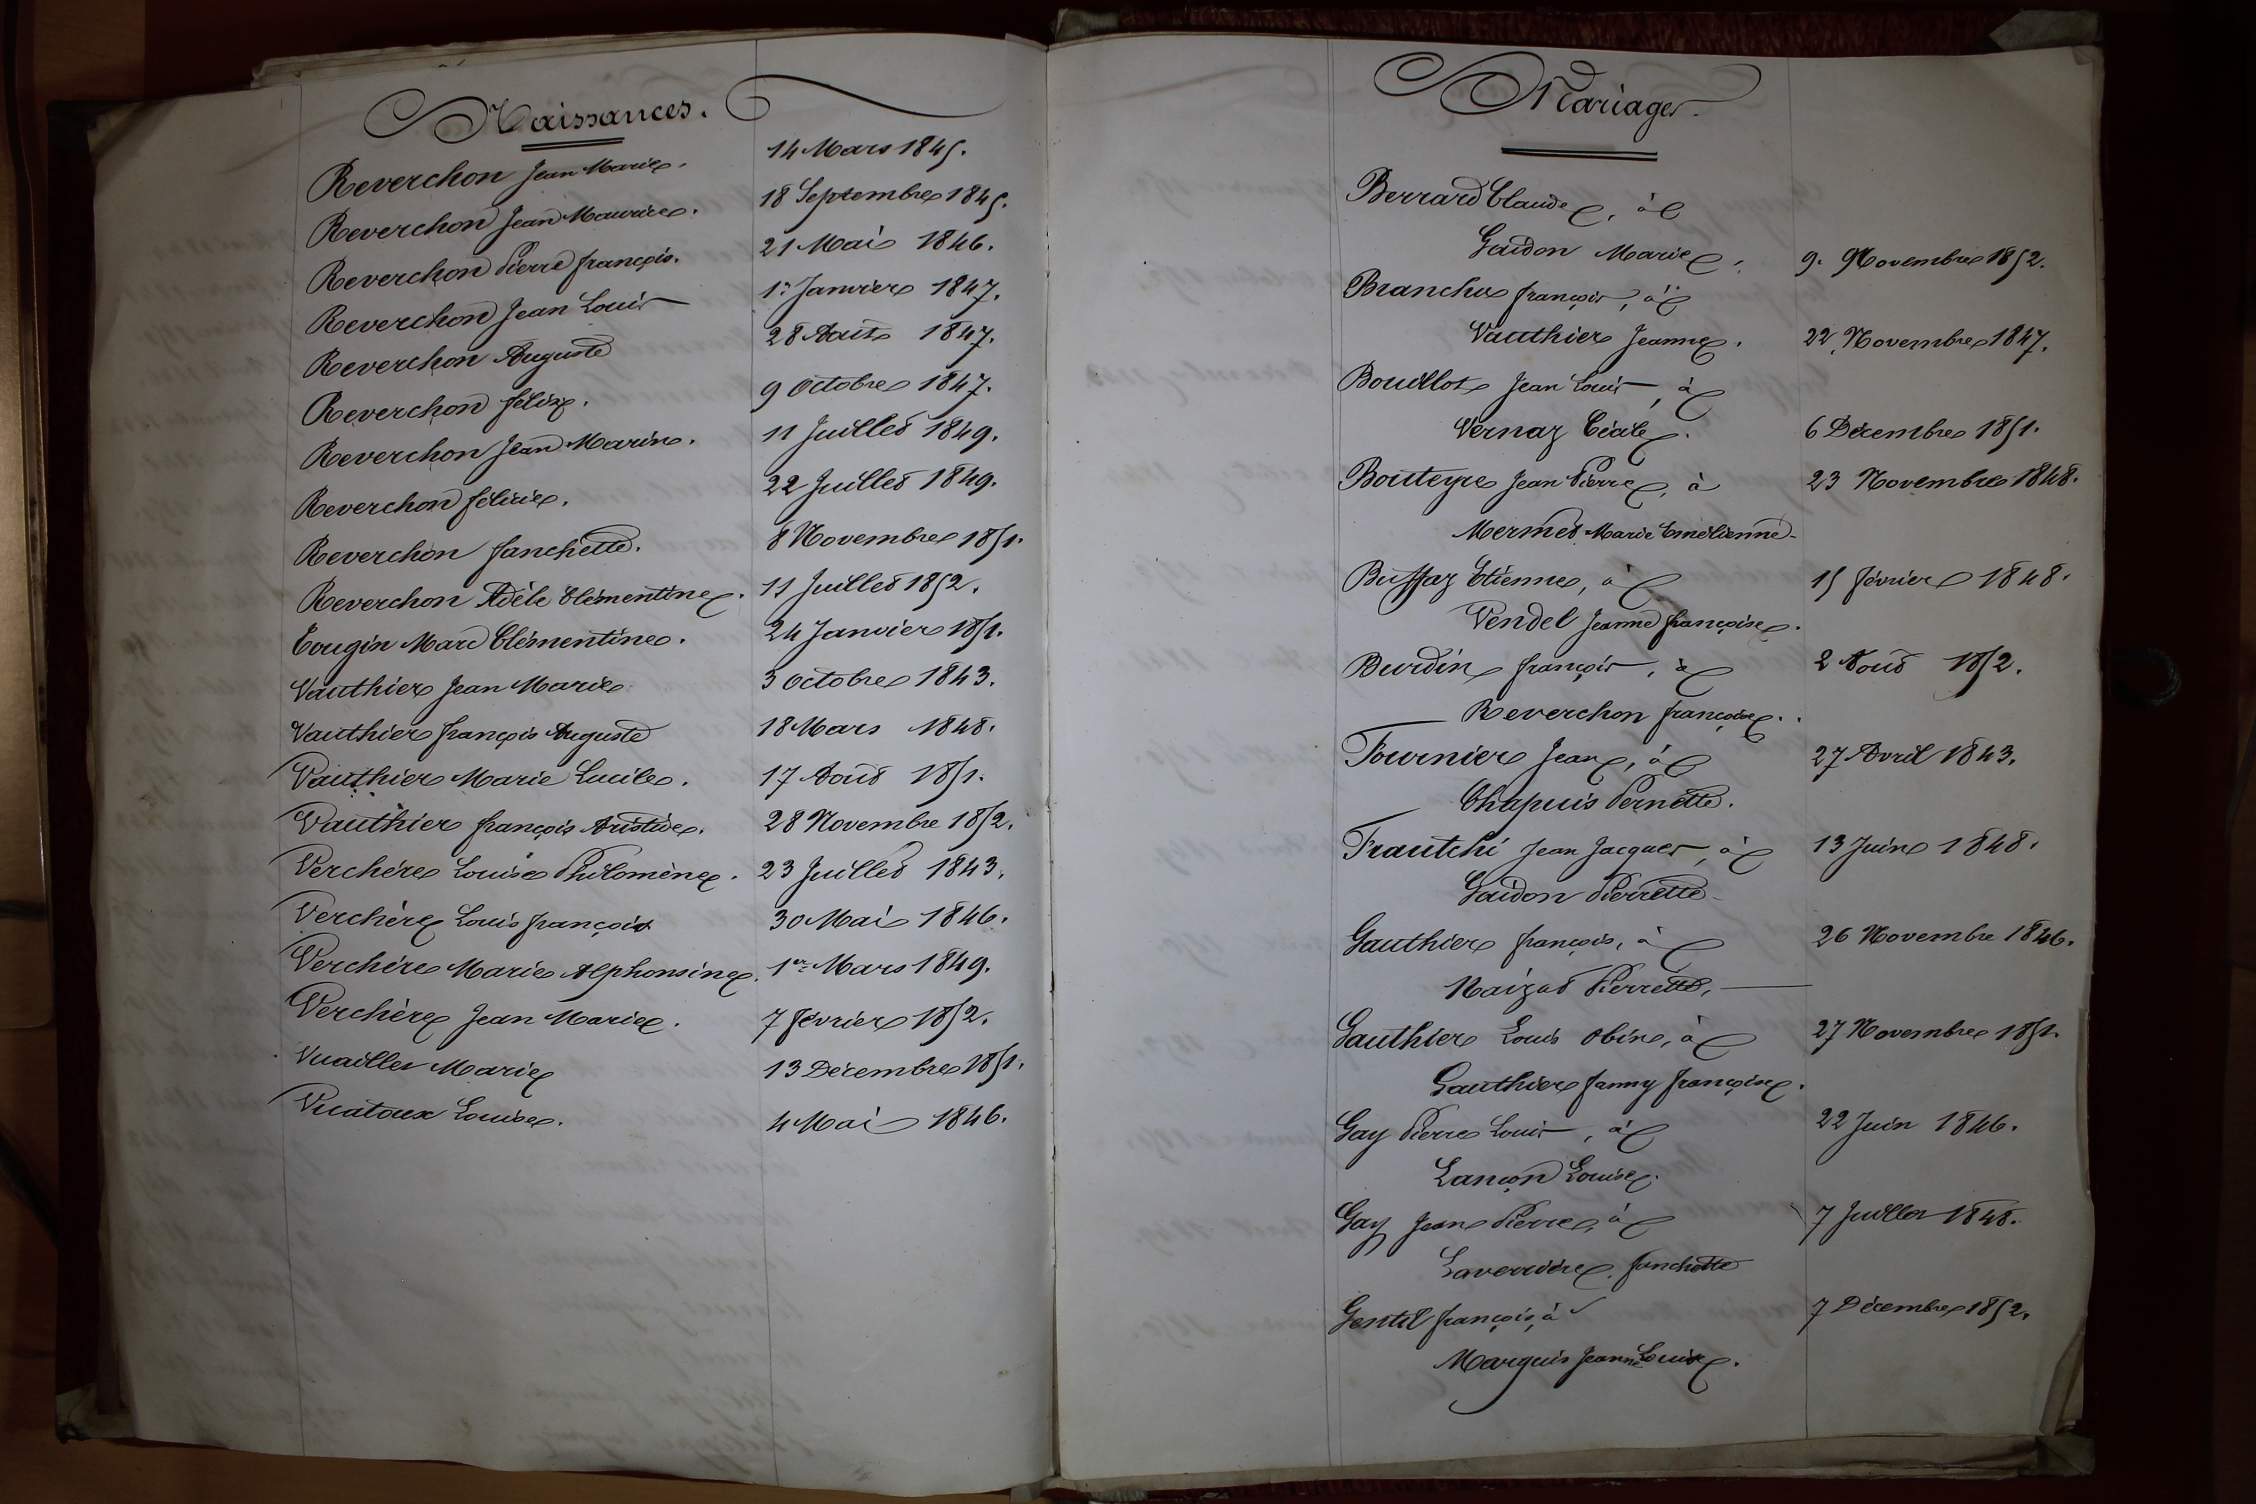 Naissances.
Reverchon Jean Marie. 14 Mars 1845.
Reverchon Jean Maurice. 18 Septembre 1845.
Reverchon Pierre françois. 21 Mai 1846.
Reverchon Jean Louis 1er Janvier 1847.
Reverchon Auguste 28 Août 1847.
Reverchon félix. 9 Octobre 1847.
Reverchon Jean Marin. 11 Juillet 1849.
Reverchon félicie. 22 Juillet 1849.
Reverchon fanchette. 8 Novembre 1851.
Reverchon Adèle Clémentine. 11 Juillet 1852.
Tougin Marc Clémentine. 24 Janvier 1851.
Vauthier Jean Marie 3 Octobre 1843.
Vauthier françois Auguste 18 Mars 1848.
Vauthier Marie Lucile. 17 Août 1851.
Vauthier françois Aristide. 28 Novembre 1852.
Verchère Louise Philomène. 23 Juillet 1843.
Verchère Louis françois 30 Mai 1846.
Verchère Marie Alphonsine. 1er Mars 1849.
Verchère Jean Marie. 7 février 1852.
Vuaillet Marie 13 Décembre 1851.
Vuataux Louise. 4 Mai 1846.
Mariages.
Berrard Claude, à
Gaidon Marie, 9. Novembre 1852.
Branche françois, à
Vauthier Jeanne. 22 Novembre 1847.
Bouillot Jean Louis, à
Vernaz Cécile. 6 Décembre 1851.
Bouteyre Jean Pierre, à 23 Novembre 1848.
Mermet Marie Emélienne
Buffaz Etienne, à 15 février 1848.
Vendel Jeanne françoise.
Burdin françois, à 2 Août 1852.
Reverchon françoise.
Fournier Jean, à 27 Avril 1843.
Chapuis Pernette.
Frautchi Jean Jacques, à 13 Juin 1848.
Gaidon Pierrette
Gauthier françois, à 26 Novembre 1846.
Naizet Pierrette,
Gauthier Louis Obin, à 27 Novembre 1851.
Gauthier fanny françoise.
Gay Pierre Louis, à 22 Juin 1846.
Lançon Louise.
Gay Jean Pierre, à 7 Juillet 1848.
Laverrière, fanchette
Gentil françois, à 7 Décembre 1852.
Marquis Jeanne Louise.